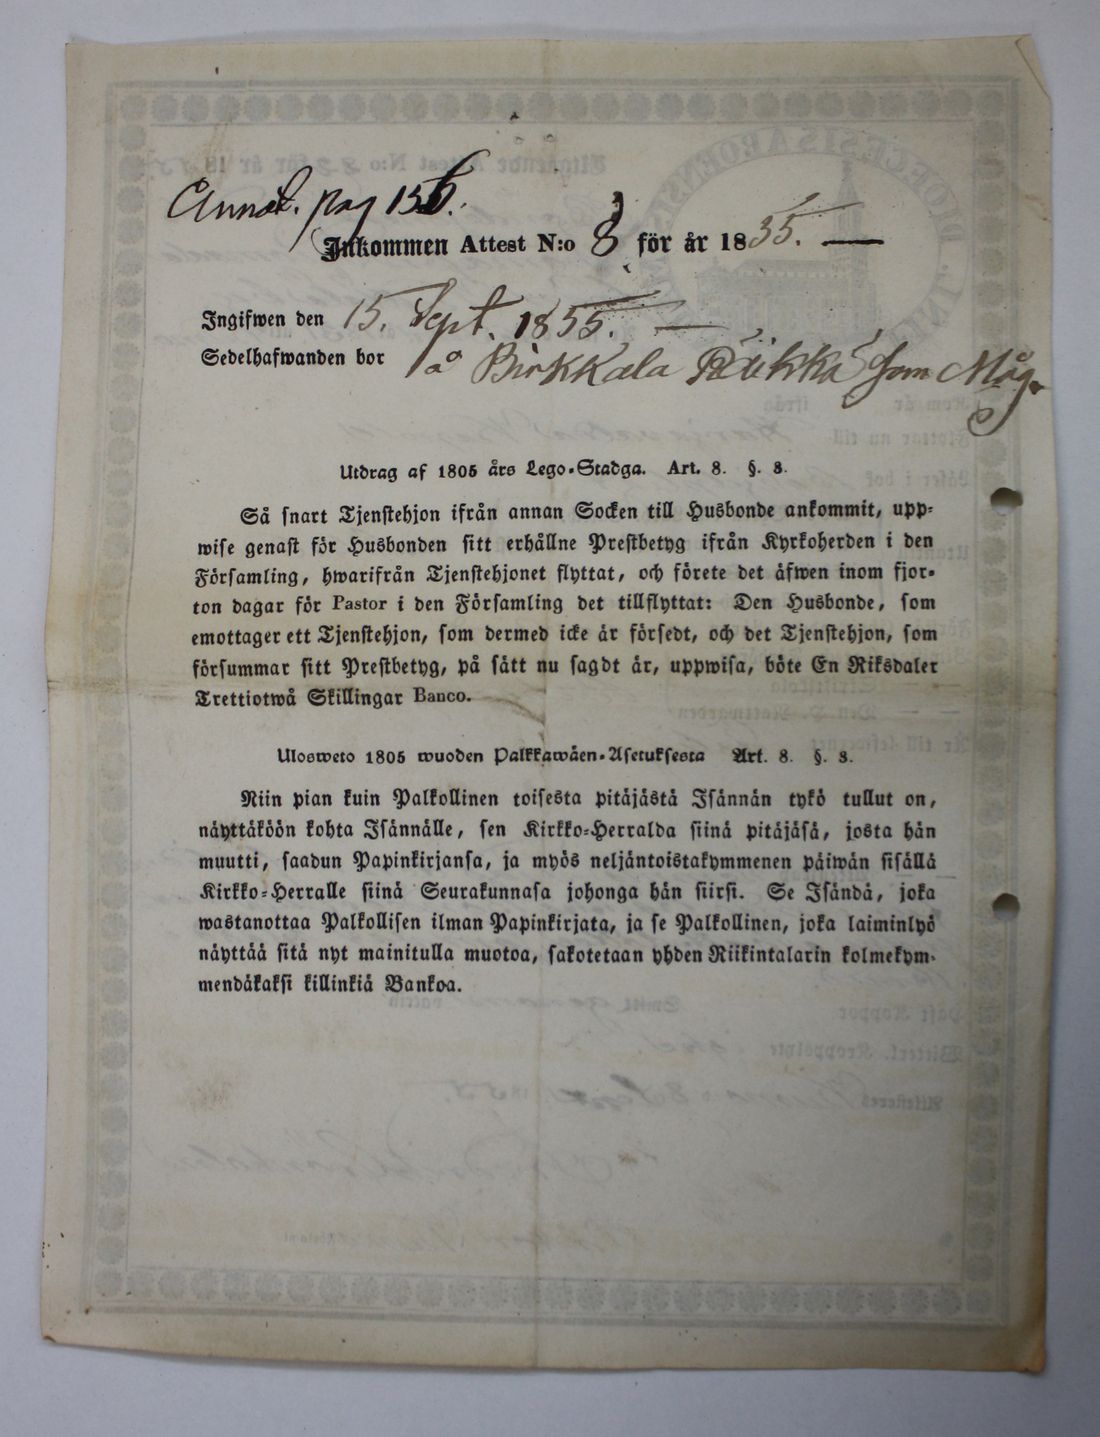 Annot. pag 156.
Inkommen Attest N:o 8 för år 1855. —
Ingifwen den 15. Sept. 1855. —
Sedelhafwanden bor å Birkkala Riikka som Måg.
Utdrag af 1805 års Lego-Stadga. Art. 8. §. 8.
Så snart Tjenstehjon ifrån annan Socken till Husbonde ankommit, upp-
wise genast för Husbonden sitt erhållne Prestbetyg ifrån Kyrkoherden i den
Församling, hwarifrån Tjenstehjonet flyttat, och förete det äfwen inom fjor-
ton dagar för Pastor i den Församling det tillflyttat: Den Husbonde, som
emottager ett Tjenstehjon, som dermed icke är försedt, och det Tjenstehjon, som
försummar sitt Prestbetyg, på sätt nu sagdt är, uppwisa, böte En Riksdaler
Trettiotwå Skillingar Banco.
Ulosweto 1805 wuoden Palkkawäen-Asetuksesta Art. 8. §. 8.
Niin pian kuin Palkollinen toisesta pitäjästä Isännän tykö tullut on,
näyttäköön kohta Isännälle, sen Kirkko-Herralda siinä pitäjäsä, josta hän
muutti, saadun Papinkirjansa, ja myös neljäntoistakymmenen päiwän sisällä
Kirkko-Herralle siinä Seurakunnasa johonga hän siirsi. Se Isändä, joka
wastanottaa Palkollisen ilman Papinkirjata, ja se Palkollinen, joka laiminlyö
näyttää sitä nyt mainitulla muotoa, sakotetaan yhden Riikintalarin kolmekym-
mendäkaksi killinkiä Bankoa.